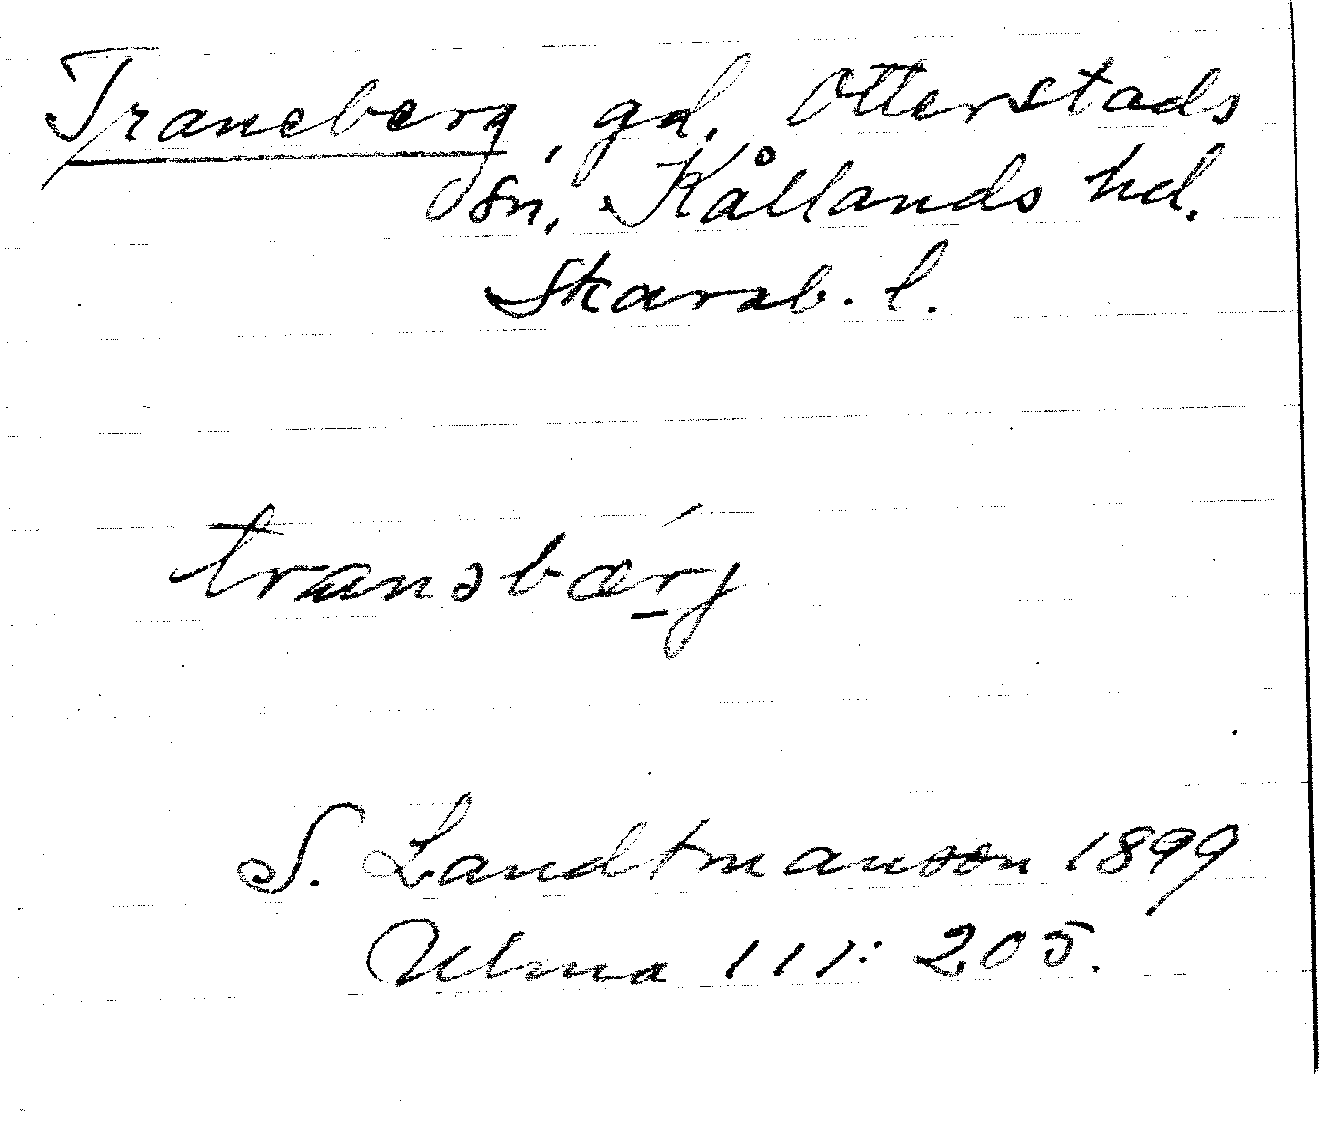 Traneberg, gd. Otterstads
sn. Kållands hd.
Skarab. l.
tranəbæŕ̲j
S. Landtmanson 1899
Ulma 111: 205.